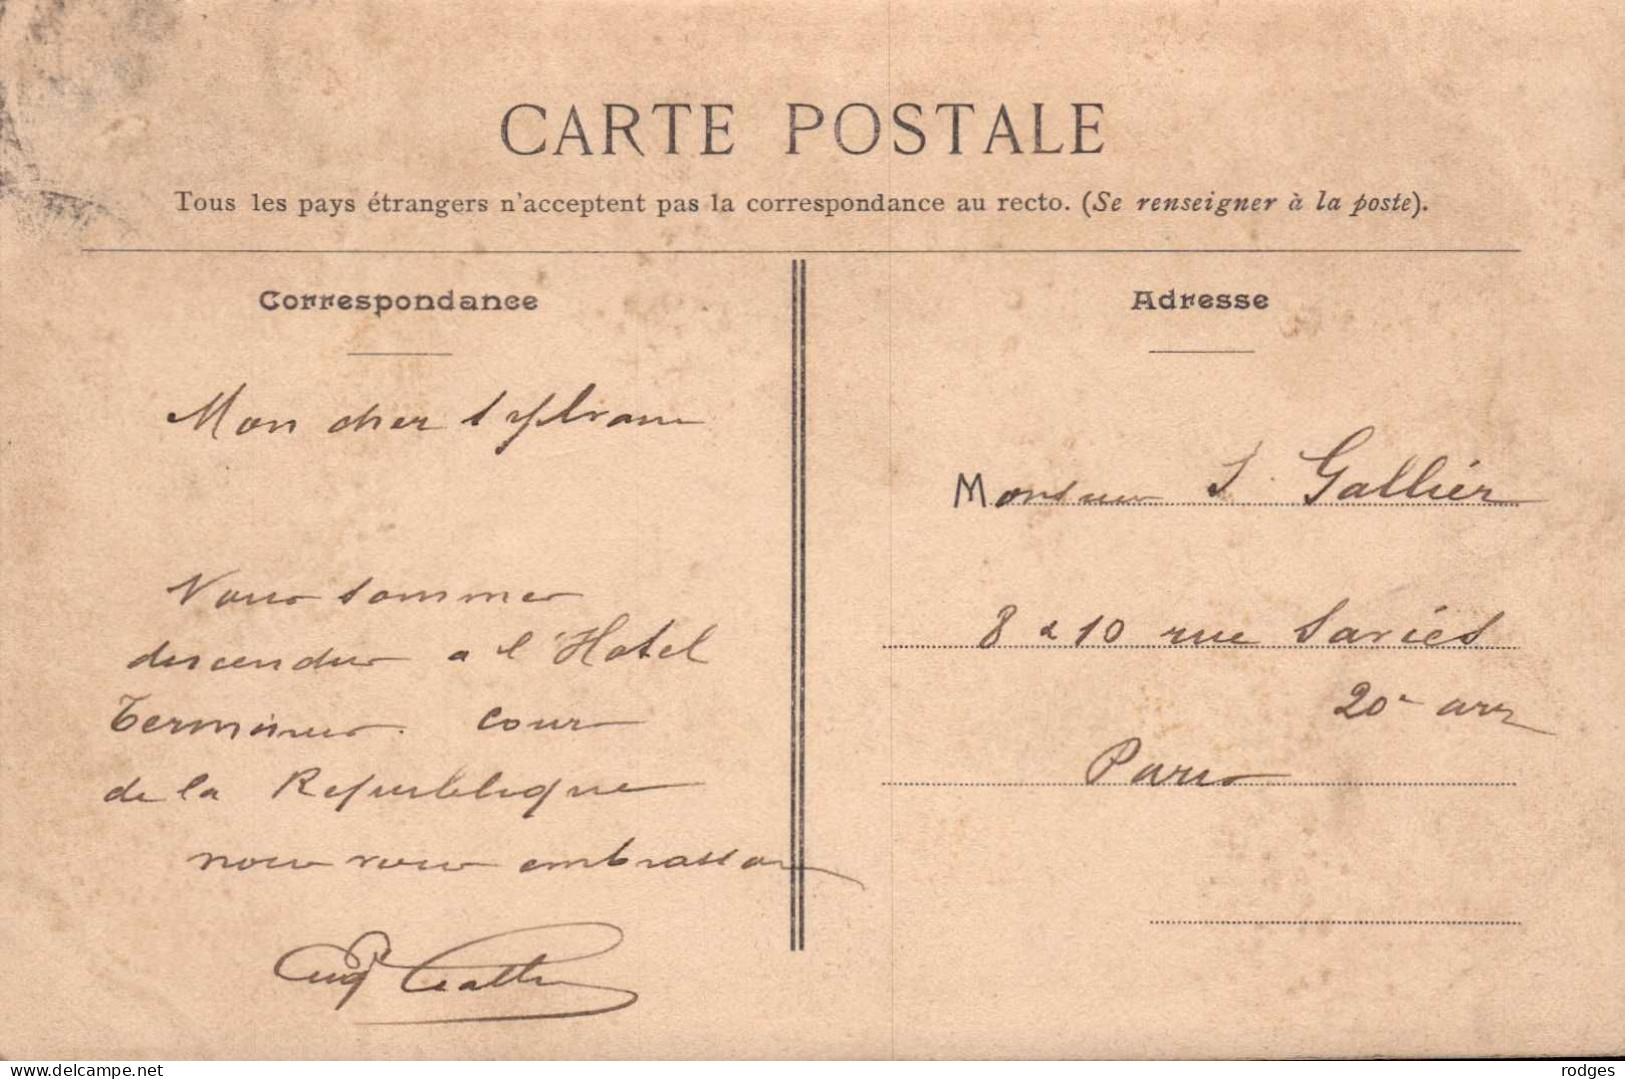 CARTE POSTALE
Tous les pays étrangers n'acceptent pas la correspondance au recto. (Se renseigner à la poste).
Correspondance
Adresse
Mon cher Sylvain
Nous sommes
descendus a l'Hotel
Terminus. Cour
de la Republique
nous vous embrassons
Monsieur S. Galliér
8 & 10 rue
20e arr
Paris
delcampe.net
rodges